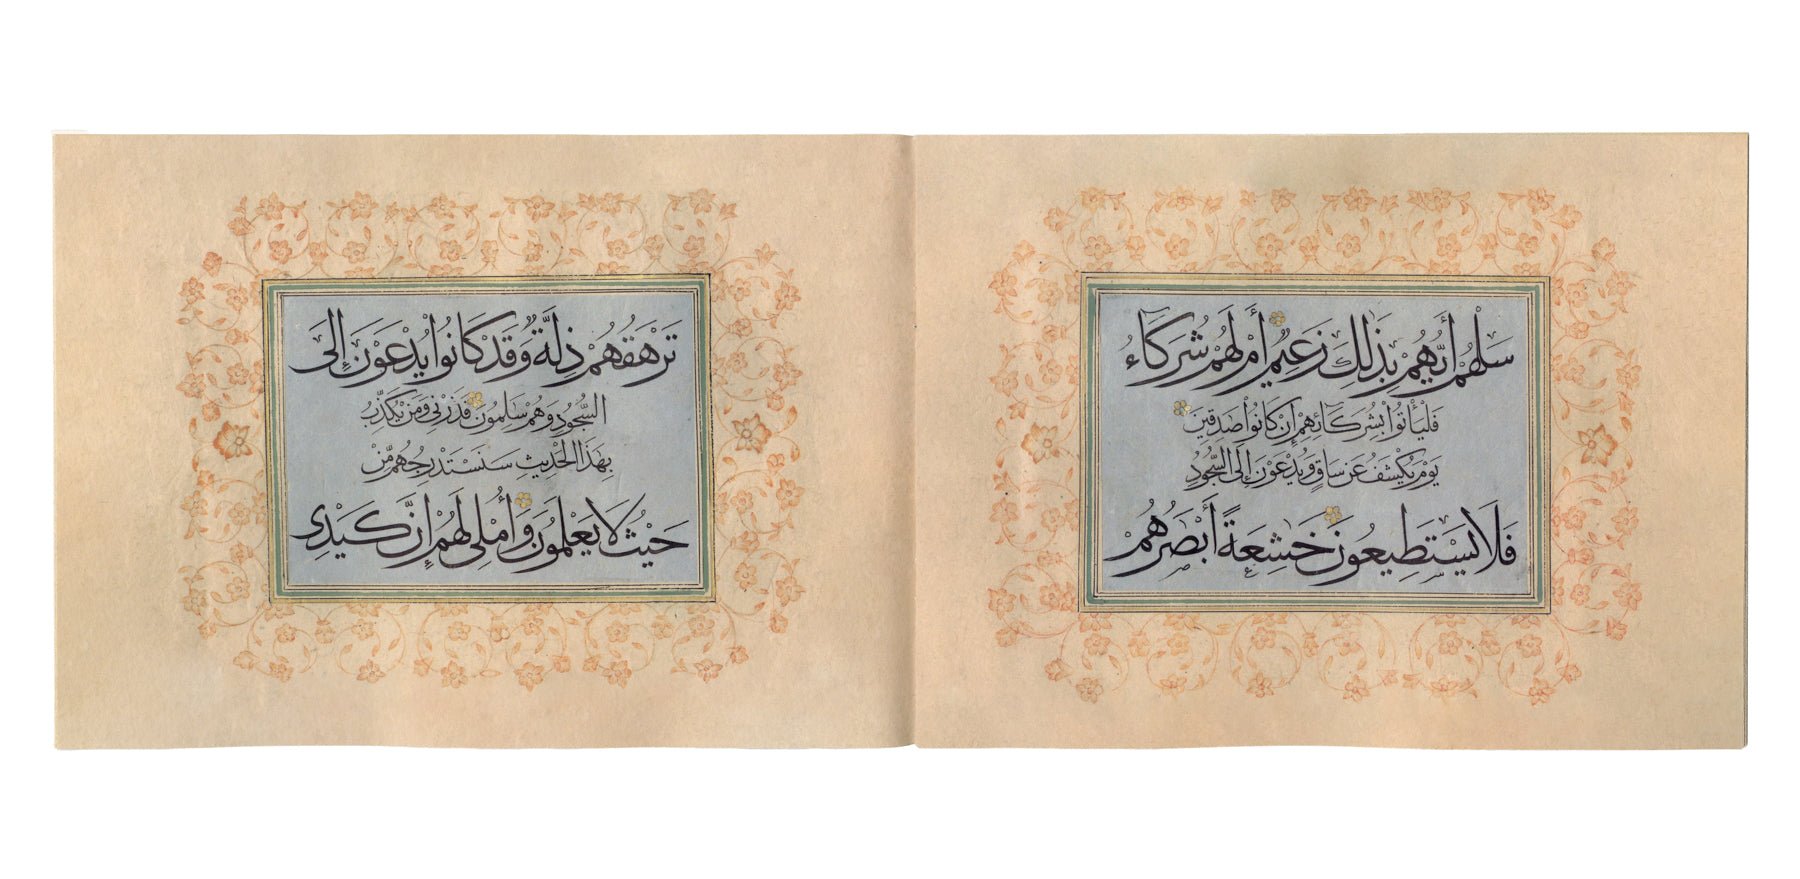 سَلْهُمْ أَيُّهُمْ بِذَٰلِكَ زَعِيمٌ أَمْ لَهُمْ شُرَكَآءُ
فَلْيَأْتُوا۟ بِشُرَكَآئِهِمْ إِن كَانُوا۟ صَٰدِقِينَ
يَوْمَ يُكْشَفُ عَن سَاقٍ وَيُدْعَوْنَ إِلَى السُّجُودِ
فَلَا يَسْتَطِيعُونَ خَٰشِعَةً أَبْصَٰرُهُمْ
تَرْهَقُهُمْ ذِلَّةٌ وَقَدْ كَانُوا۟ يُدْعَوْنَ إِلَى
السُّجُودِ وَهُمْ سَٰلِمُونَ فَذَرْنِي وَمَن يُكَذِّبُ
بِهَٰذَا الْحَدِيثِ سَنَسْتَدْرِجُهُم مِّنْ
حَيْثُ لَا يَعْلَمُونَ وَأُمْلِي لَهُمْ إِنَّ كَيْدِي